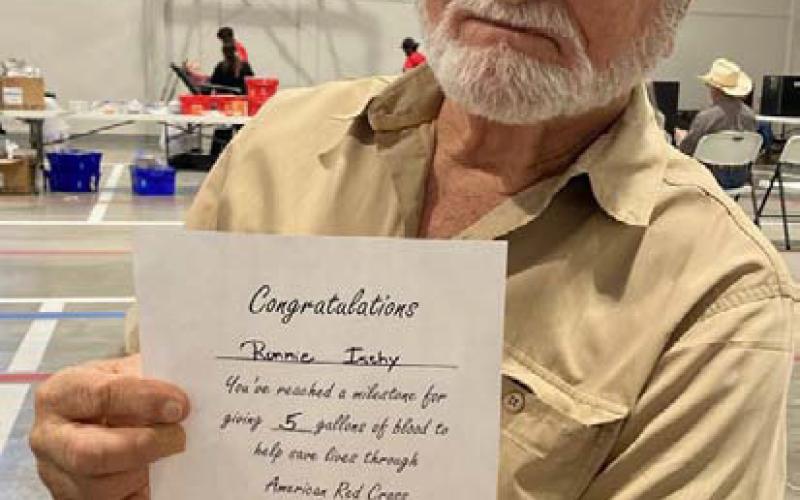 Congratulations
Ronnie Irshy
You've reached a milestone for
giving 5 gallons of blood to
help save lives through
American Red Cross